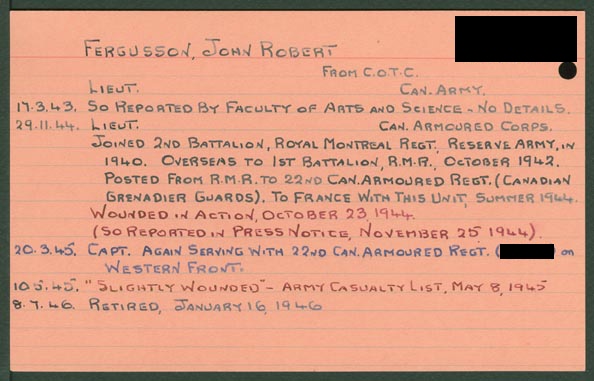 FERGUSSON, JOHN ROBERT
FROM C.O.T.C.
LIEUT. CAN. ARMY.
17.3.43. SO REPORTED BY FACULTY OF ARTS AND SCIENCE - NO DETAILS.
29.11.44. LIEUT. CAN. ARMOURED CORPS.
JOINED 2ND BATTALION, ROYAL MONTREAL REGT, RESERVE ARMY, IN
1940. OVERSEAS TO 1ST BATTALION, R.M.R., OCTOBER 1942.
POSTED FROM R.M.R. TO 22ND CAN. ARMOURED REGT. (CANADIAN
GRENADIER GUARDS). TO FRANCE WITH THIS UNIT, SUMMER 1944.
WOUNDED IN ACTION, OCTOBER 23, 1944.
(SO REPORTED IN PRESS NOTICE, NOVEMBER 25 1944).
20.3.45. CAPT. AGAIN SERVING WITH 22ND CAN. ARMOURED REGT. ( ) on
WESTERN FRONT.
10.5.45. "SLIGHTLY WOUNDED" - ARMY CASUALTY LIST, MAY 8, 1945
8.7.46. RETIRED, JANUARY 16, 1946